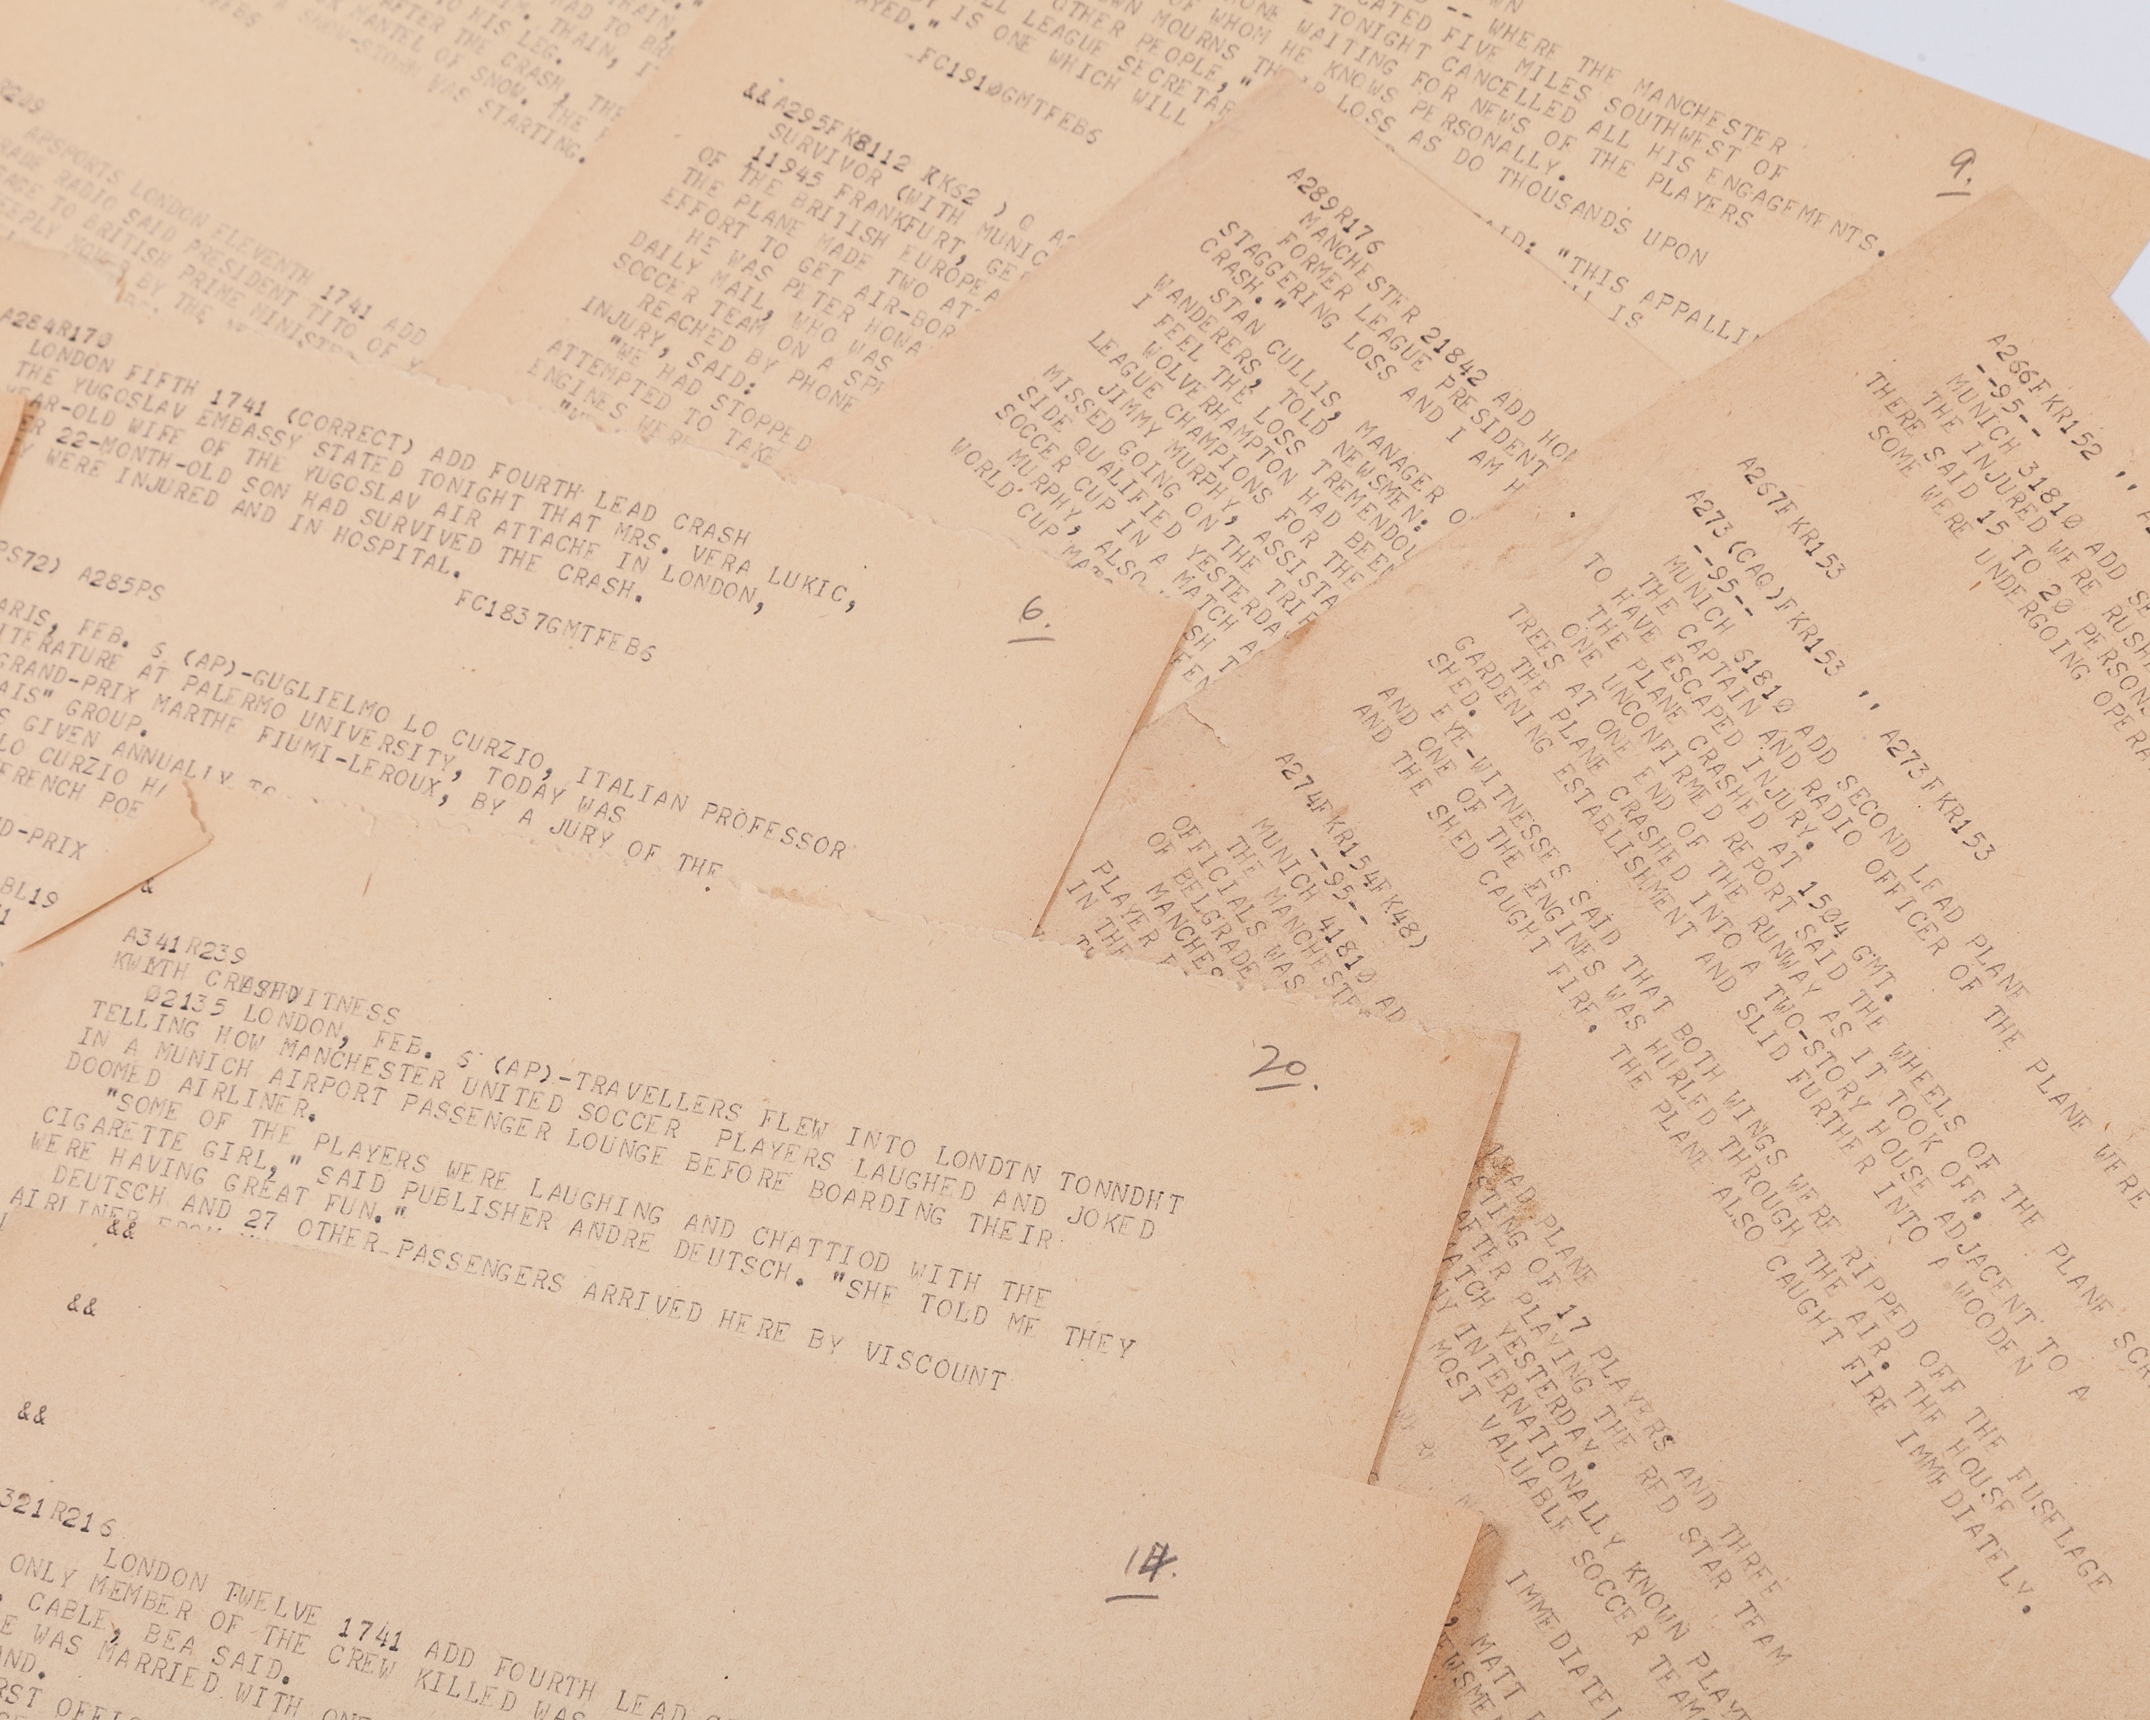 HIS LEG.
AFTER THE CRASH, THE
MANTEL OF SNOW. THE
SNOW-STORM WAS STARTING.
APSPORTS LONDON ELEVENTH 1741 ADD
RADIO SAID PRESIDENT TITO OF
TO BRITISH PRIME MINISTE
BY THE
A284R170
LONDON FIFTH 1741 (CORRECT) ADD FOURTH LEAD CRASH
THE YUGOSLAV EMBASSY STATED TONIGHT THAT MRS. VERA LUKIC,
EAR-OLD WIFE OF THE YUGOSLAV AIR ATTACHE IN LONDON,
ER 22-MONTH-OLD SON HAD SURVIVED THE CRASH.
EY WERE INJURED AND IN HOSPITAL.
FC1837GMTFEB6
6.
PS72) A285PS
ARIS, FEB. 6 (AP)-GUGLIELMO LO CURZIO, ITALIAN PROFESSOR
ITERATURE AT PALERMO UNIVERSITY, TODAY WAS
GRAND-PRIX MARTHE FIUMI-LEROUX, BY A JURY OF THE
AIS" GROUP.
S GIVEN ANNUALLY TO
LO CURZIO HA
FRENCH POE
D-PRIX
BL19
&
A341R239
CRASHWITNESS
02135 LONDON, FEB. 6 (AP)-TRAVELLERS FLEW INTO LONDTN TONNDHT
TELLING HOW MANCHESTER UNITED SOCCER PLAYERS LAUGHED AND JOKED
IN A MUNICH AIRPORT PASSENGER LOUNGE BEFORE BOARDING THEIR
DOOMED AIRLINER.
"SOME OF THE PLAYERS WERE LAUGHING AND CHATTIOD WITH THE
CIGARETTE GIRL," SAID PUBLISHER ANDRE DEUTSCH. "SHE TOLD ME THEY
WERE HAVING GREAT FUN."
DEUTSCH AND 27 OTHER PASSENGERS ARRIVED HERE BY VISCOUNT
AIRLINER
20.
&&
&&
&&
321R216
LONDON TWELVE 1741 ADD FOURTH LEAD
ONLY MEMBER OF THE CREW KILLED WAS
CABLE, BEA SAID.
E WAS MARRIED WITH ONE
AND.
RST OFFIC
14.
&&A295FK8112 KK62 ) Q
SURVIVOR (WITH MUNIC
11945 FRANKFURT, GER
OF THE BRITISH EUROPEA
THE PLANE MADE TWO AT
EFFORT TO GET AIR-BOR
HE WAS PETER HOWA
DAILY MAIL, WHO WAS
SOCCER TEAM ON A SPE
REACHED BY PHONE
INJURY, SAID:
"WE HAD STOPPED
ATTEMPTED TO TAKE
ENGINES WERE
-- WHERE THE MANCHESTER
CATED FIVE MILES SOUTHWEST OF
TONIGHT CANCELLED ALL HIS ENGAGEMENTS.
ONE WAITING FOR NEWS OF THE PLAYERS
OF WHOM HE KNOWS PERSONALLY.
OWN MOURNS THEIR LOSS AS DO THOUSANDS UPON
OTHER PEOPLE,"
LL LEAGUE SECRETAR
AID: "THIS APPALLI
IS ONE WHICH WILL
IS
AYED."
FC1910GMTFEB6
9.
A289R176
MANCHESTER 21842 ADD
FORMER LEAGUE PRESIDENT
STAGGERING LOSS AND I AM H
CRASH."
STAN CULLIS, MANAGER O
WANDERERS, TOLD NEWSMEN:
I FEEL THE LOSS TREMENDOU
WOLVERHAMPTON HAD BEEN
LEAGUE CHAMPIONS FOR THE
JIMMY MURPHY, ASSISTA
MISSED GOING ON THE TRIP
SIDE QUALIFIED YESTERDA
SOCCER CUP IN A MATCH A
MURPHY, ALSO
WORLD CUP
A266FKR152
--95--
MUNICH 31810 ADD SE
THE INJURED WERE RUSH
THERE SAID 15 TO 20 PERSONS
SOME WERE UNDERGOING OPERA
A267FKR153
A273(CAQ)FKR153 '' A273FKR153
--95--
MUNICH 61810 ADD SECOND LEAD PLANE
THE CAPTAIN AND RADIO OFFICER OF THE PLANE WERE
TO HAVE ESCAPED INJURY.
THE PLANE CRASHED AT 1504 GMT.
ONE UNCONFIRMED REPORT SAID THE WHEELS OF THE PLANE SCR
TREES AT ONE END OF THE RUNWAY AS IT TOOK OFF.
THE PLANE CRASHED INTO A TWO-STORY HOUSE ADJACENT TO A
GARDENING ESTABLISHMENT AND SLID FURTHER INTO A WOODEN
SHED.
EYE-WITNESSES SAID THAT BOTH WINGS WERE RIPPED OFF THE FUSELAGE
AND ONE OF THE ENGINES WAS HURLED THROUGH THE AIR. THE HOUSE
AND THE SHED CAUGHT FIRE. THE PLANE ALSO CAUGHT FIRE IMMEDIATELY.
A274FKR154FK48)
--95--
MUNICH 41810 AD
THE MANCHESTE
OFFICIALS WAS
OF BELGRADE
MANCHES
PLAYER
IN THE
EAD PLANE
STING OF 17 PLAYERS AND THREE
AFTER PLAYING THE RED STAR TEAM
ATCH YESTERDAY.
NY INTERNATIONALLY KNOWN PLAYE
MOST VALUABLE SOCCER TEAMS
IMMEDIATEL
MATT
EWSME